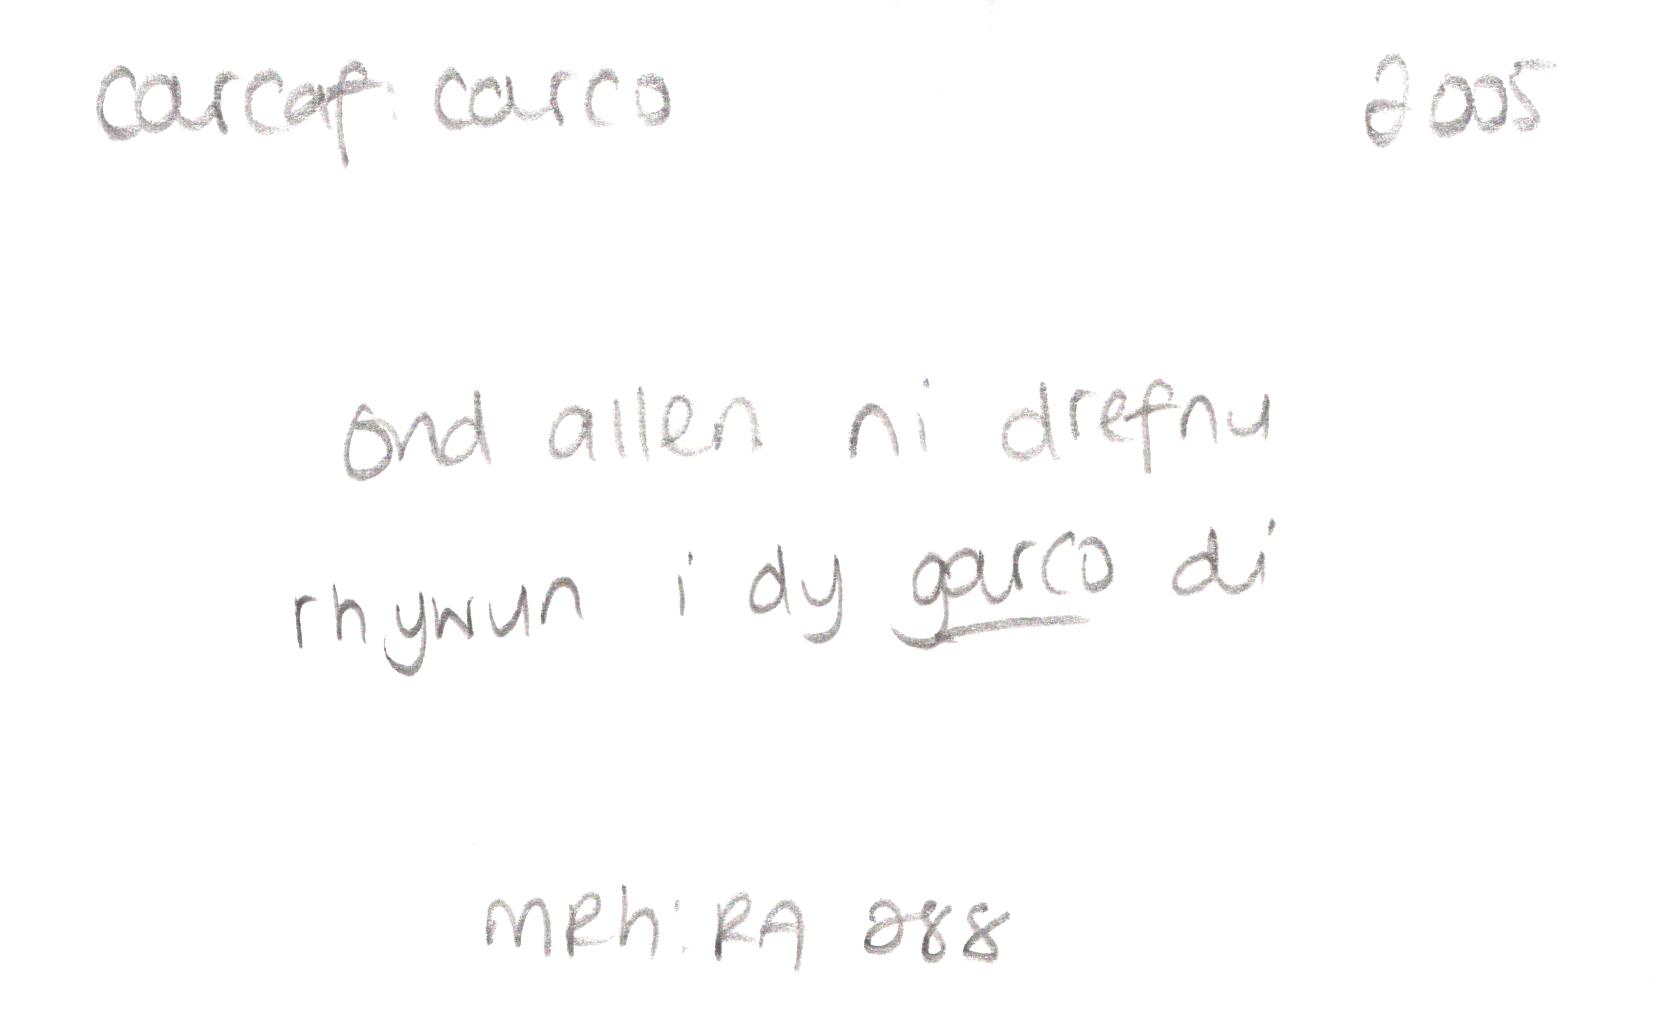 carcaf: carco 2005
ond allen ni drefnu
rhywun i dy garco di
MRh: RA 288